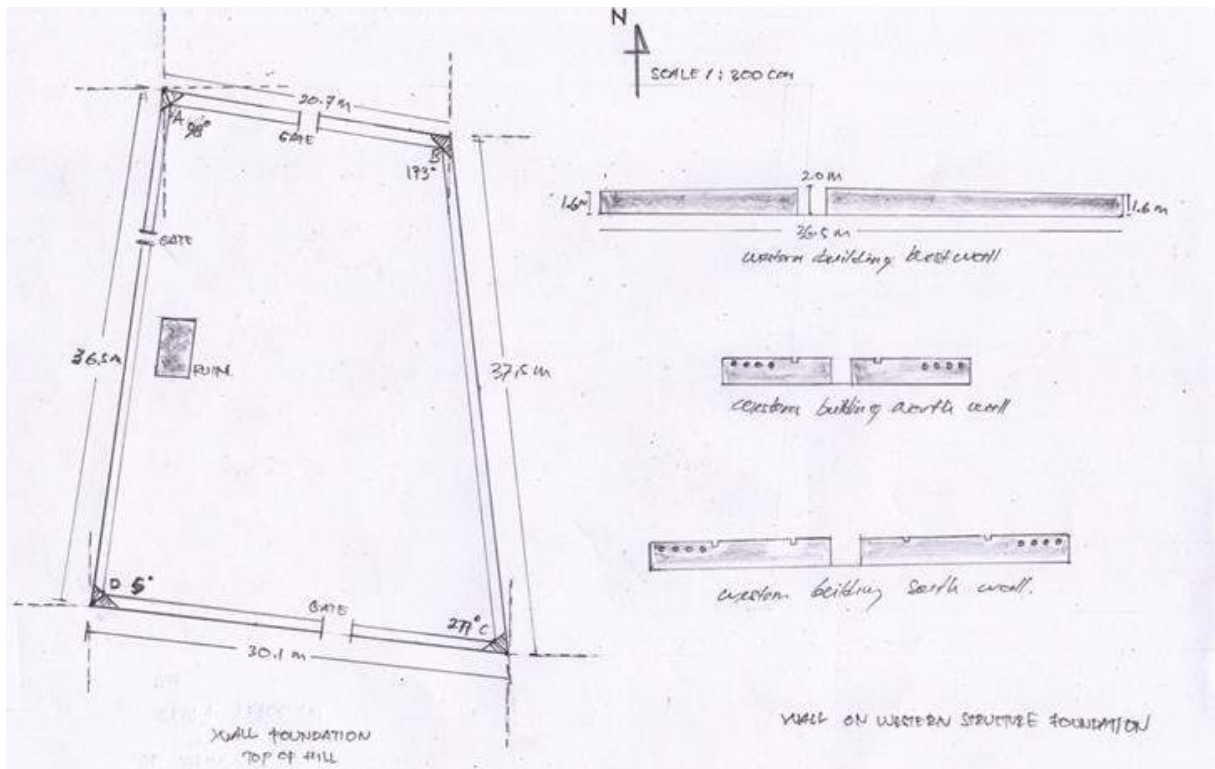 N
SCALE 1:200 cm
20.7 m
A 98°
GATE
B
173°
GATE
36.5 m
RUINS
37.5 m
D 5°
GATE
277° C
30.1 m
WALL FOUNDATION
TOP OF HILL
2.0 m
1.6m
1.6 m
36.5 m
western building west wall
western building north wall
western building south wall.
WALL ON WESTERN STRUCTURE FOUNDATION